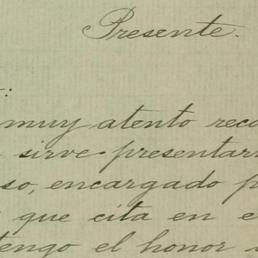 Presente.
:
muy atento reco
sirve presentar
so, encargado p
que cita en e
tengo el honor